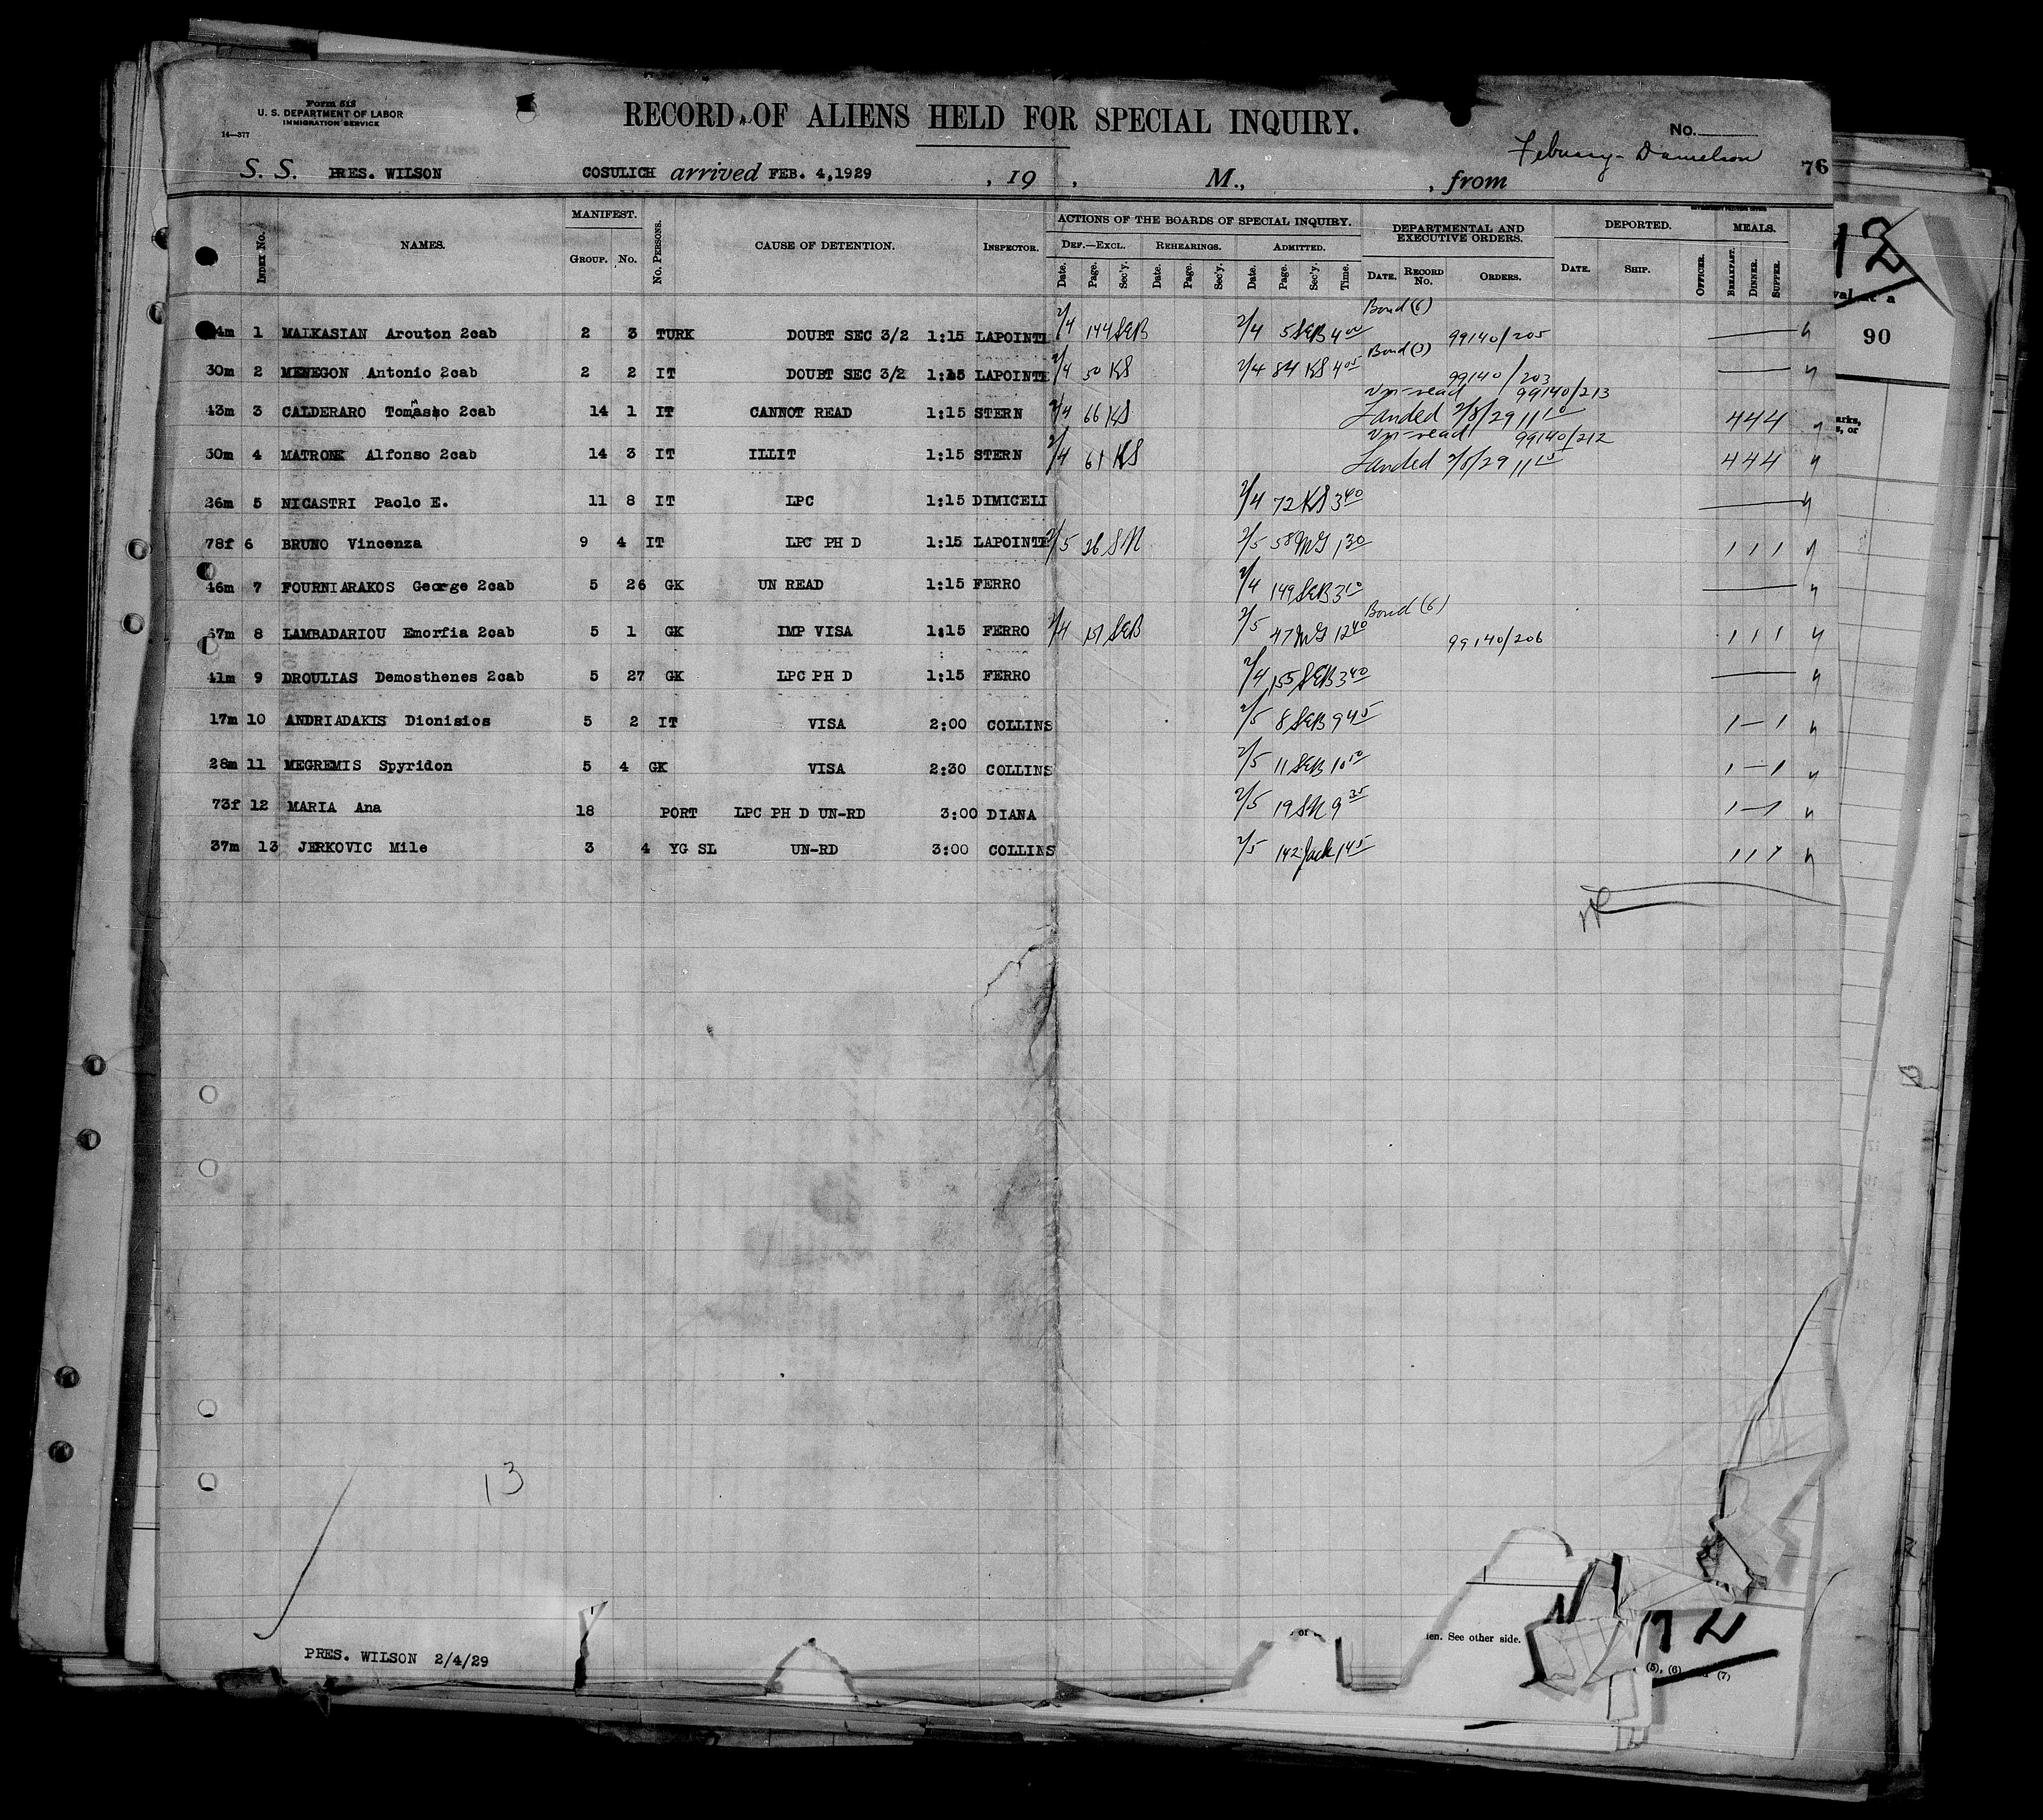 Form 512
U. S. DEPARTMENT OF LABOR
IMMIGRATION SERVICE
14—377
RECORD OF ALIENS HELD FOR SPECIAL INQUIRY.
No.
76
S. S. PRES. WILSON COSULICH arrived FEB. 4,1929 , 19 , M., , from
INDEX No. NAMES. MANIFEST. GROUP. No. No. PERSONS. CAUSE OF DETENTION. INSPECTOR. ACTIONS OF THE BOARDS OF SPECIAL INQUIRY. DEPARTMENTAL AND EXECUTIVE ORDERS. DEPORTED. MEALS.
DEF.—EXCL. REHEARINGS. ADMITTED.
Date. Page. Sec'y. Date. Page. Sec'y. Date. Page. Sec'y. Time. DATE. RECORD No. ORDERS. DATE. SHIP. OFFICER. BREAKFAST. DINNER. SUPPER.
12
90
Bond (6)
4m 1 MALKASIAN Arouton 2cab 2 3 TURK DOUBT SEC 3/2 1:15 LAPOINTE 2/4 144 SEB 2/4 5 SEB 4 00 99140/205
Bond (3)
30m 2 MENEGON Antonio 2cab 2 2 IT DOUBT SEC 3/2 1:15 LAPOINTE 2/4 50 KS 2/4 84 KS 4 05 99140/203
99140/213
43m 3 CALDERARO Tomasso 2cab 14 1 IT CANNOT READ 1:15 STERN 2/4 66 KS Landed 2/8/29 11 10 4 4 4
99140/212
30m 4 MATRONE Alfonso 2cab 14 3 IT ILLIT 1:15 STERN 2/4 61 KS Landed 2/8/29 11 10 4 4 4
26m 5 NICASTRI Paolo E. 11 8 IT LPC 1:15 DIMICELI 2/4 72 KS 3 40
78f 6 BRUNO Vincenza 9 4 IT LPC PH D 1:15 LAPOINTE 2/5 26 SN 2/5 58 MG 1 30 1 1 1
46m 7 FOURNIARAKOS George 2cab 5 26 GK UN READ 1:15 FERRO 2/4 149 SEB 3 10
Bond (6)
67m 8 LAMBADARIOU Emorfia 2cab 5 1 GK IMP VISA 1:15 FERRO 2/4 151 SEB 2/5 47 MG 12 40 99140/206 1 1 1
41m 9 DROULIAS Demosthenes 2cab 5 27 GK LPC PH D 1:15 FERRO 2/4 155 SEB 3 40
17m 10 ANDRIADAKIS Dionisios 5 2 IT VISA 2:00 COLLINS 2/5 8 SEB 9 45 1 — 1
28m 11 MEGREMIS Spyridon 5 4 GK VISA 2:30 COLLINS 2/5 11 SEB 10 10 1 — 1
73f 12 MARIA Ana 18 PORT LPC PH D UN-RD 3:00 DIANA 2/5 19 SN 9 35 1 — 1
37m 13 JERKOVIC Mile 3 4 YG SL UN-RD 3:00 COLLINS 2/5 142 Jack 1 45 1 1 1
13
See other side.
PRES. WILSON 2/4/29
(5), (6) (7)